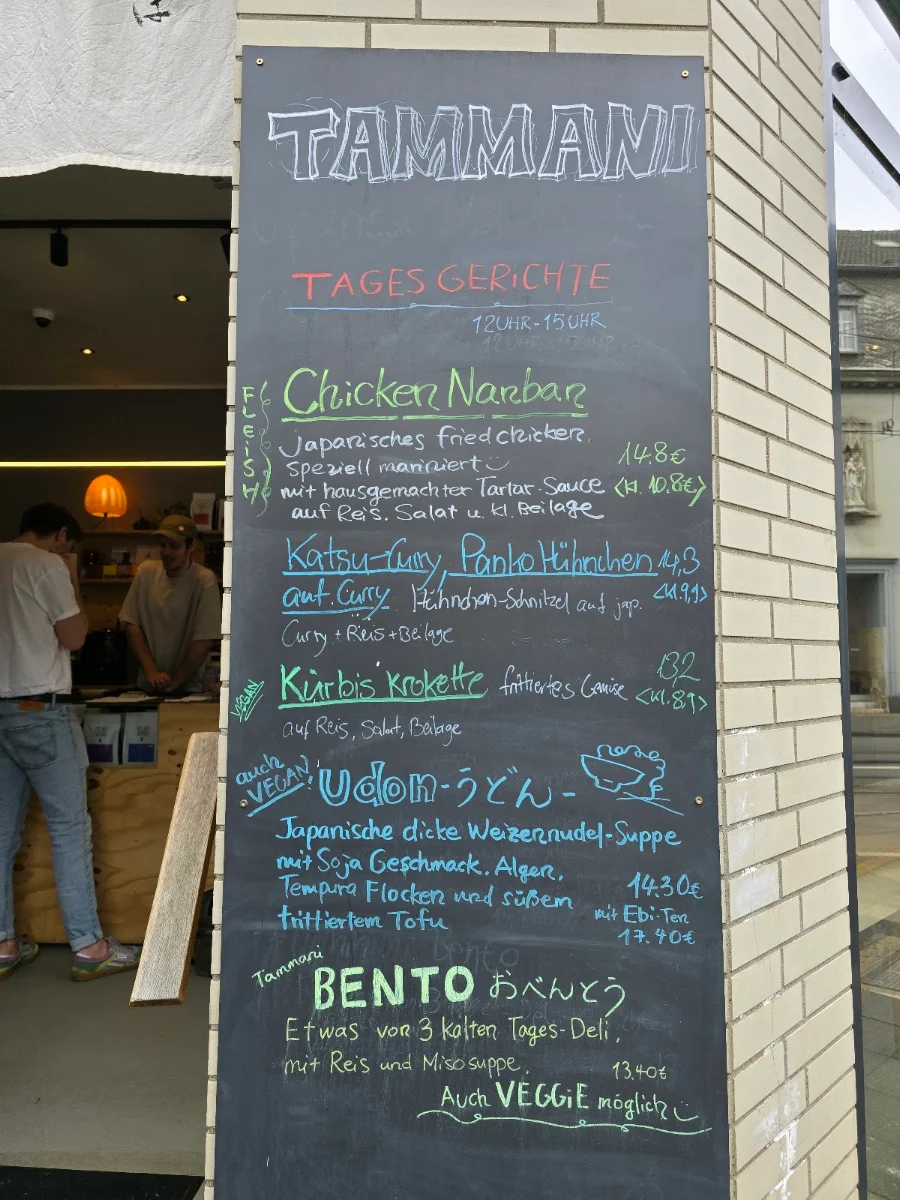 TAMMANI
TAGES GERICHTE
12 UHR - 15 UHR
FLEISH
Chicken Nanban
Japanisches fried chicken.
speziell mariniert
mit hausgemachter Tartar-Sauce
auf Reis. Salat u. kl. Beilage
14.8€
<kl. 10.8€>
Katsu-Curry, Panko Hühnchen 14,3
auf Curry Hühnchen-Schnitzel auf jap. <kl. 9,1>
Curry + Reis + Beilage
VEGAN
Kürbis Krokette frittiertes Gemüse
13,2
<kl. 8,1>
auf Reis, Salat, Beilage
auch VEGAN!
Udon - うどん -
Japanische dicke Weizennudel-Suppe
mit Soja Geschmack. Algen,
Tempura Flocken und süßem
frittiertem Tofu
14.30€
mit Ebi-Ten
17.40€
Tammani
BENTO おべんとう
Etwas von 3 kalten Tages-Deli.
mit Reis und Misosuppe.
13.40€
Auch VEGGiE möglich